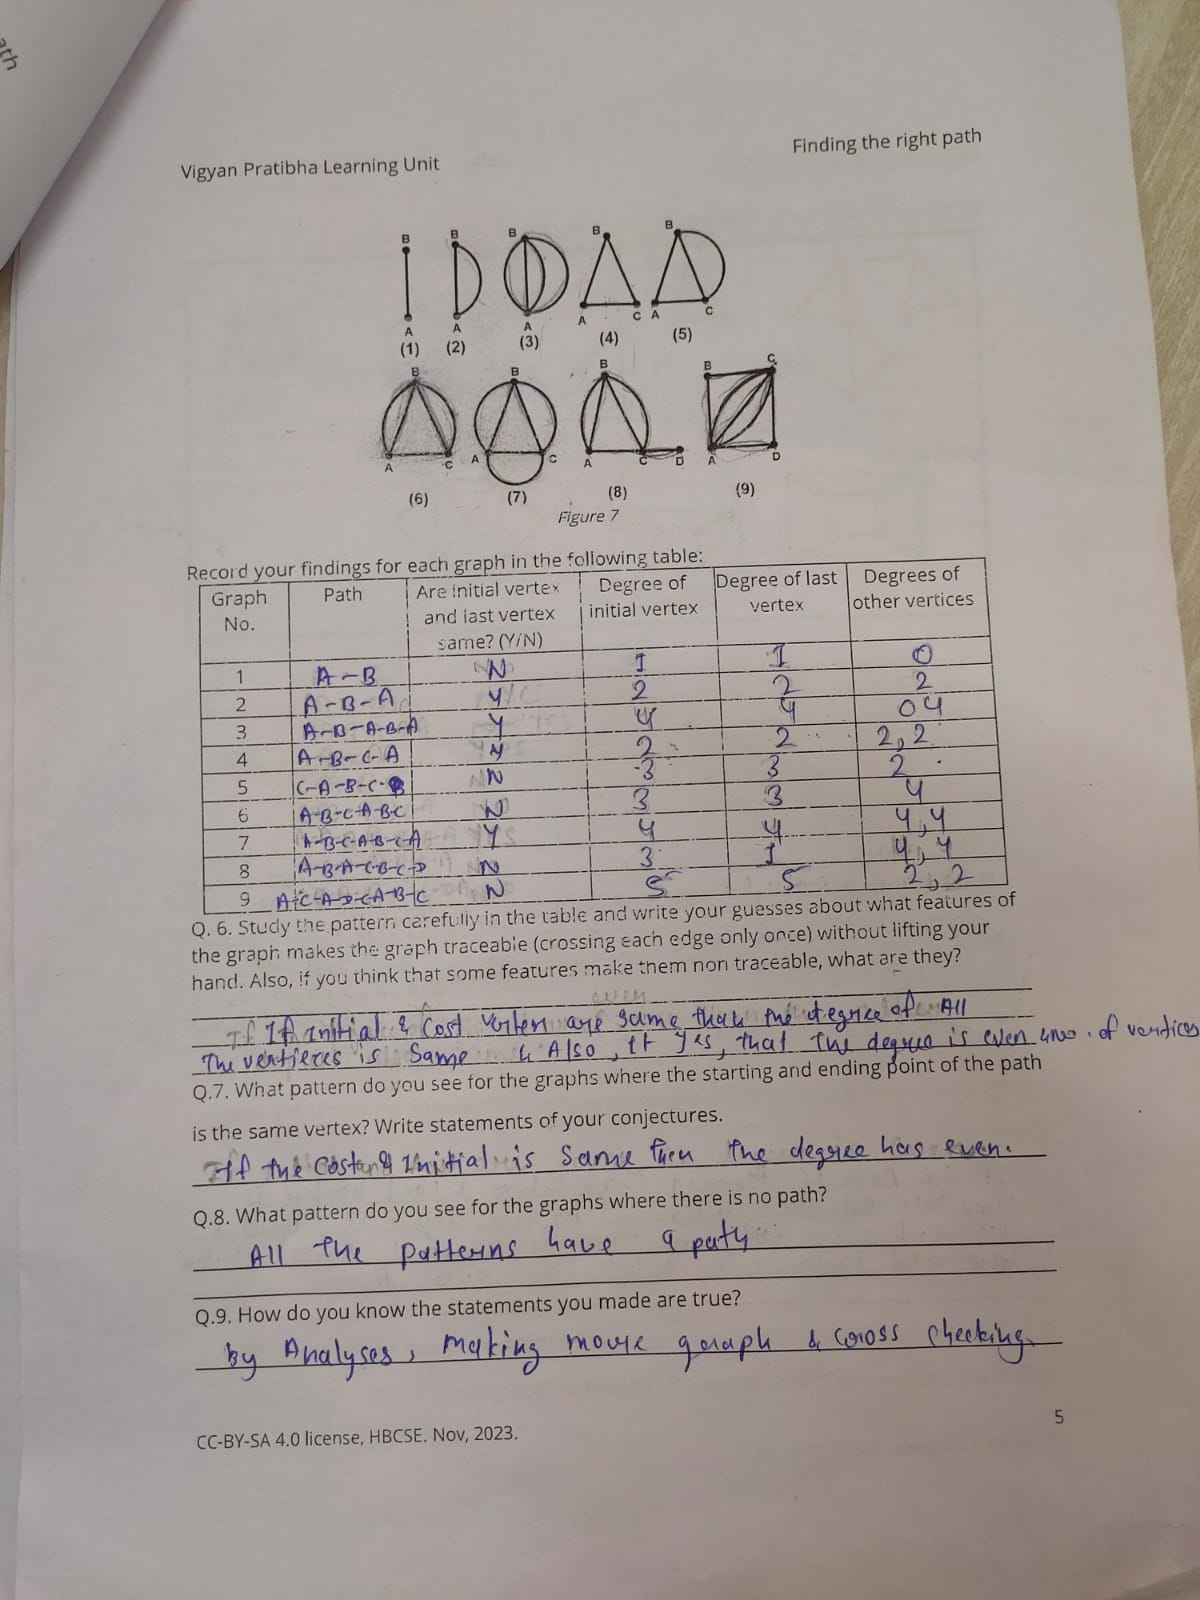 ath
Vigyan Pratibha Learning Unit
Finding the right path
B B B B B
A A A A C A C
(1) (2) (3) (4) (5)
B B B B C
A C A C A C D A D
(6) (7) (8) (9)
Figure 7
Record your findings for each graph in the following table:
Graph No. Path Are initial vertex and last vertex same? (Y/N) Degree of initial vertex Degree of last vertex Degrees of other vertices
1 A-B N 1 1 0
2 A-B-A Y 2 2 2
3 A-B-A-B-A Y 4 4 04
4 A-B-C-A 2 2 2,2
5 C-A-B-C- N 3 3 2
6 A-B-C-A-B-C N 3 3 4
7 A-B-C-A-B-C-A Y 4 4 4,4
8 A-B-A-C-B-C-D N 3 1 4,4
9 A-C-A-D-C-A-B-C N 5 5 2,2
Q. 6. Study the pattern carefully in the table and write your guesses about what features of
the graph makes the graph traceable (crossing each edge only once) without lifting your
hand. Also, if you think that some features make them non traceable, what are they?
even
If If initial & Cost verten are same than the degree of All
The vertieces is Same & Also, if yes, that the degree is even &no. of vertices
Q.7. What pattern do you see for the graphs where the starting and ending point of the path
is the same vertex? Write statements of your conjectures.
If the Cost and Initial is Same then the degree has even.
Q.8. What pattern do you see for the graphs where there is no path?
All the patterns have a path
Q.9. How do you know the statements you made are true?
by Analyses, making more graph & Cross checking.
CC-BY-SA 4.0 license, HBCSE. Nov, 2023.
5